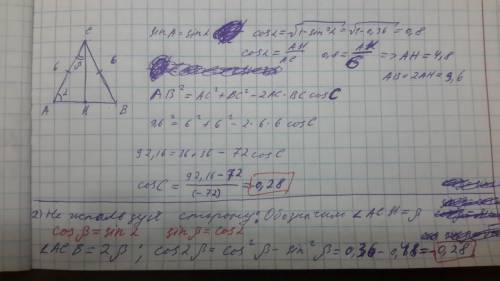 C
β
6 6
α
A H B
sin A = sin α cos α = √1-sin²α = √1-0,36 = 0,8
cos α = AH/AC 0,8 = AH/6 => AH = 4,8
AB = 2AH = 9,6
AB² = AC² + BC² - 2AC·BC cos C
= 6² + 6² - 2·6·6 cos C
92,16 = 36 + 36 - 72 cos C
cos C = 92,16 - 72 / (-72) = -0,28
2) Не используя сторону: Обозначим ∠ACH = β
cos β = sin α sin β = cos α
∠ACB = 2β ; cos 2β = cos²β - sin²β = 0,36 - = -0,28